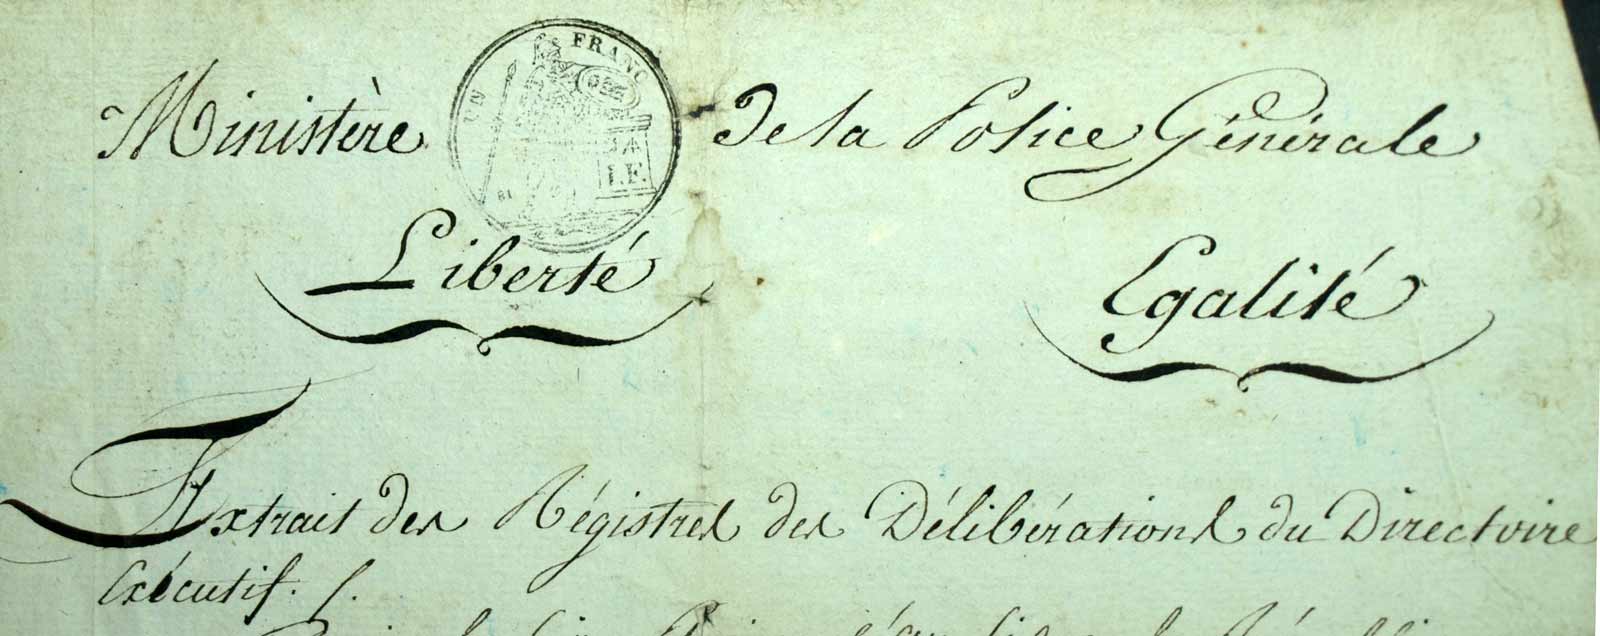 Ministère de la Police Générale
UN FRANC
Liberté Egalité
Extrait des Régistres des Délibérations du Directoire
Exécutif.